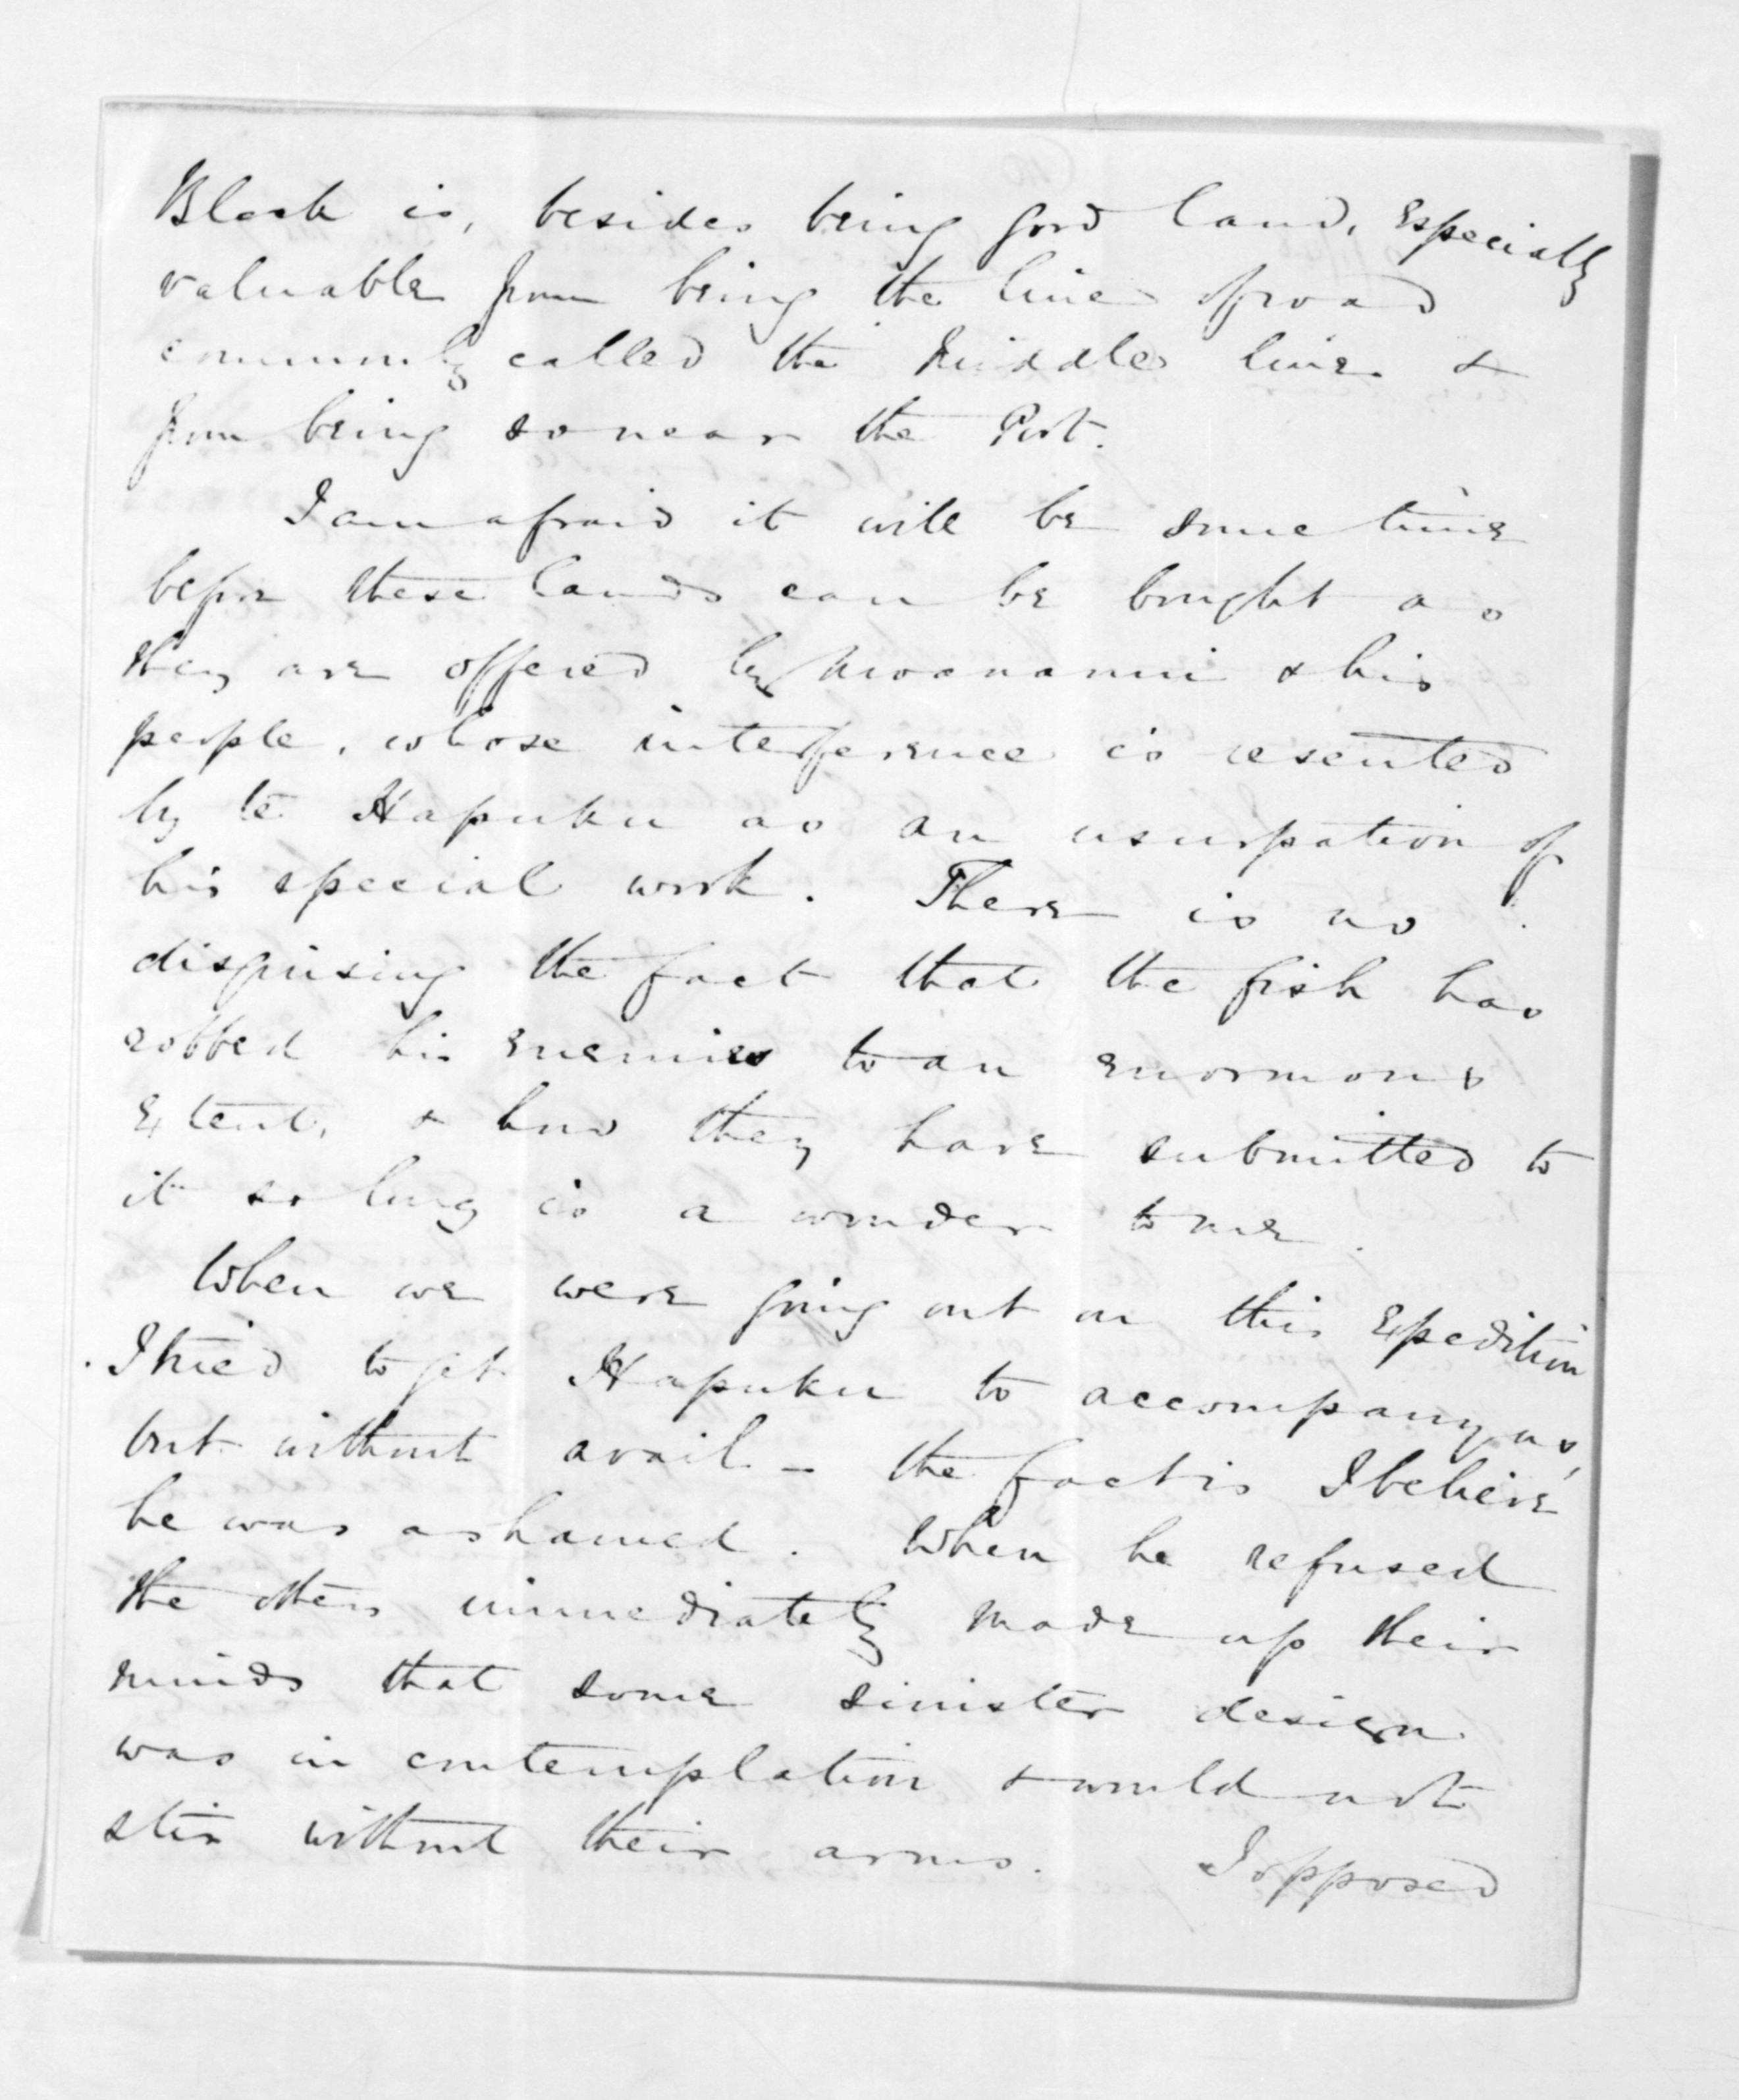 Block is, besides being good land, especially
valuable from being the line of road
commonly called the middle line &
from being so near the Port.
I am afraid it will be some time
before these lands can be bought as
they are offered by Moananui & his
people, whose interference is resented
by te Hapuku as an usurpation of
his special work. There is no
disguising the fact that the fish has
robbed his enemies to an enormous
extent, & how they have submitted to
it so long is a wonder to me.
When we were going out on this expedition
I tried to get Hapuku to accompany us,
but without avail - the fact is I believe
he was ashamed. When he refused
the others immediately made up their
minds that some sinister design
was in contemplation & would not
stir without their arms. I opposed